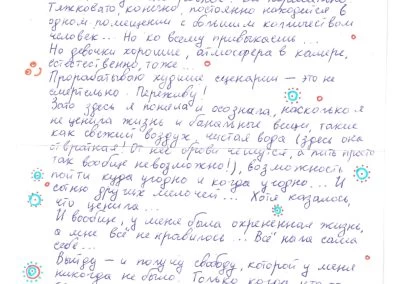 Тяжковато, конечно, постоянно находится в
одном помещении с большим количеством
человек... Но ко всему привыкаешь...
Но девочки хорошие, атмосфера в камере,
естественно, тоже...
Прорабатываю худшие сценарии — это не
смертельно. Переживу!
Зато здесь я поняла и осознала, насколько я
не ценила жизнь и банальные вещи, такие
как свежий воздух, чистая вода (здесь она
отвратная! От нее брови чешутся, а пить просто
так вообще невозможно!), возможность
пойти куда угодно и когда угодно... И
сотню других мелочей... Хотя казалось,
что ценила...
И вообще, у меня была охрененная жизнь,
а мне всё не нравилось... Всё ныла сама
себе...
Выйду — и получу свободу, которой у меня
никогда не было. Только когда что-то